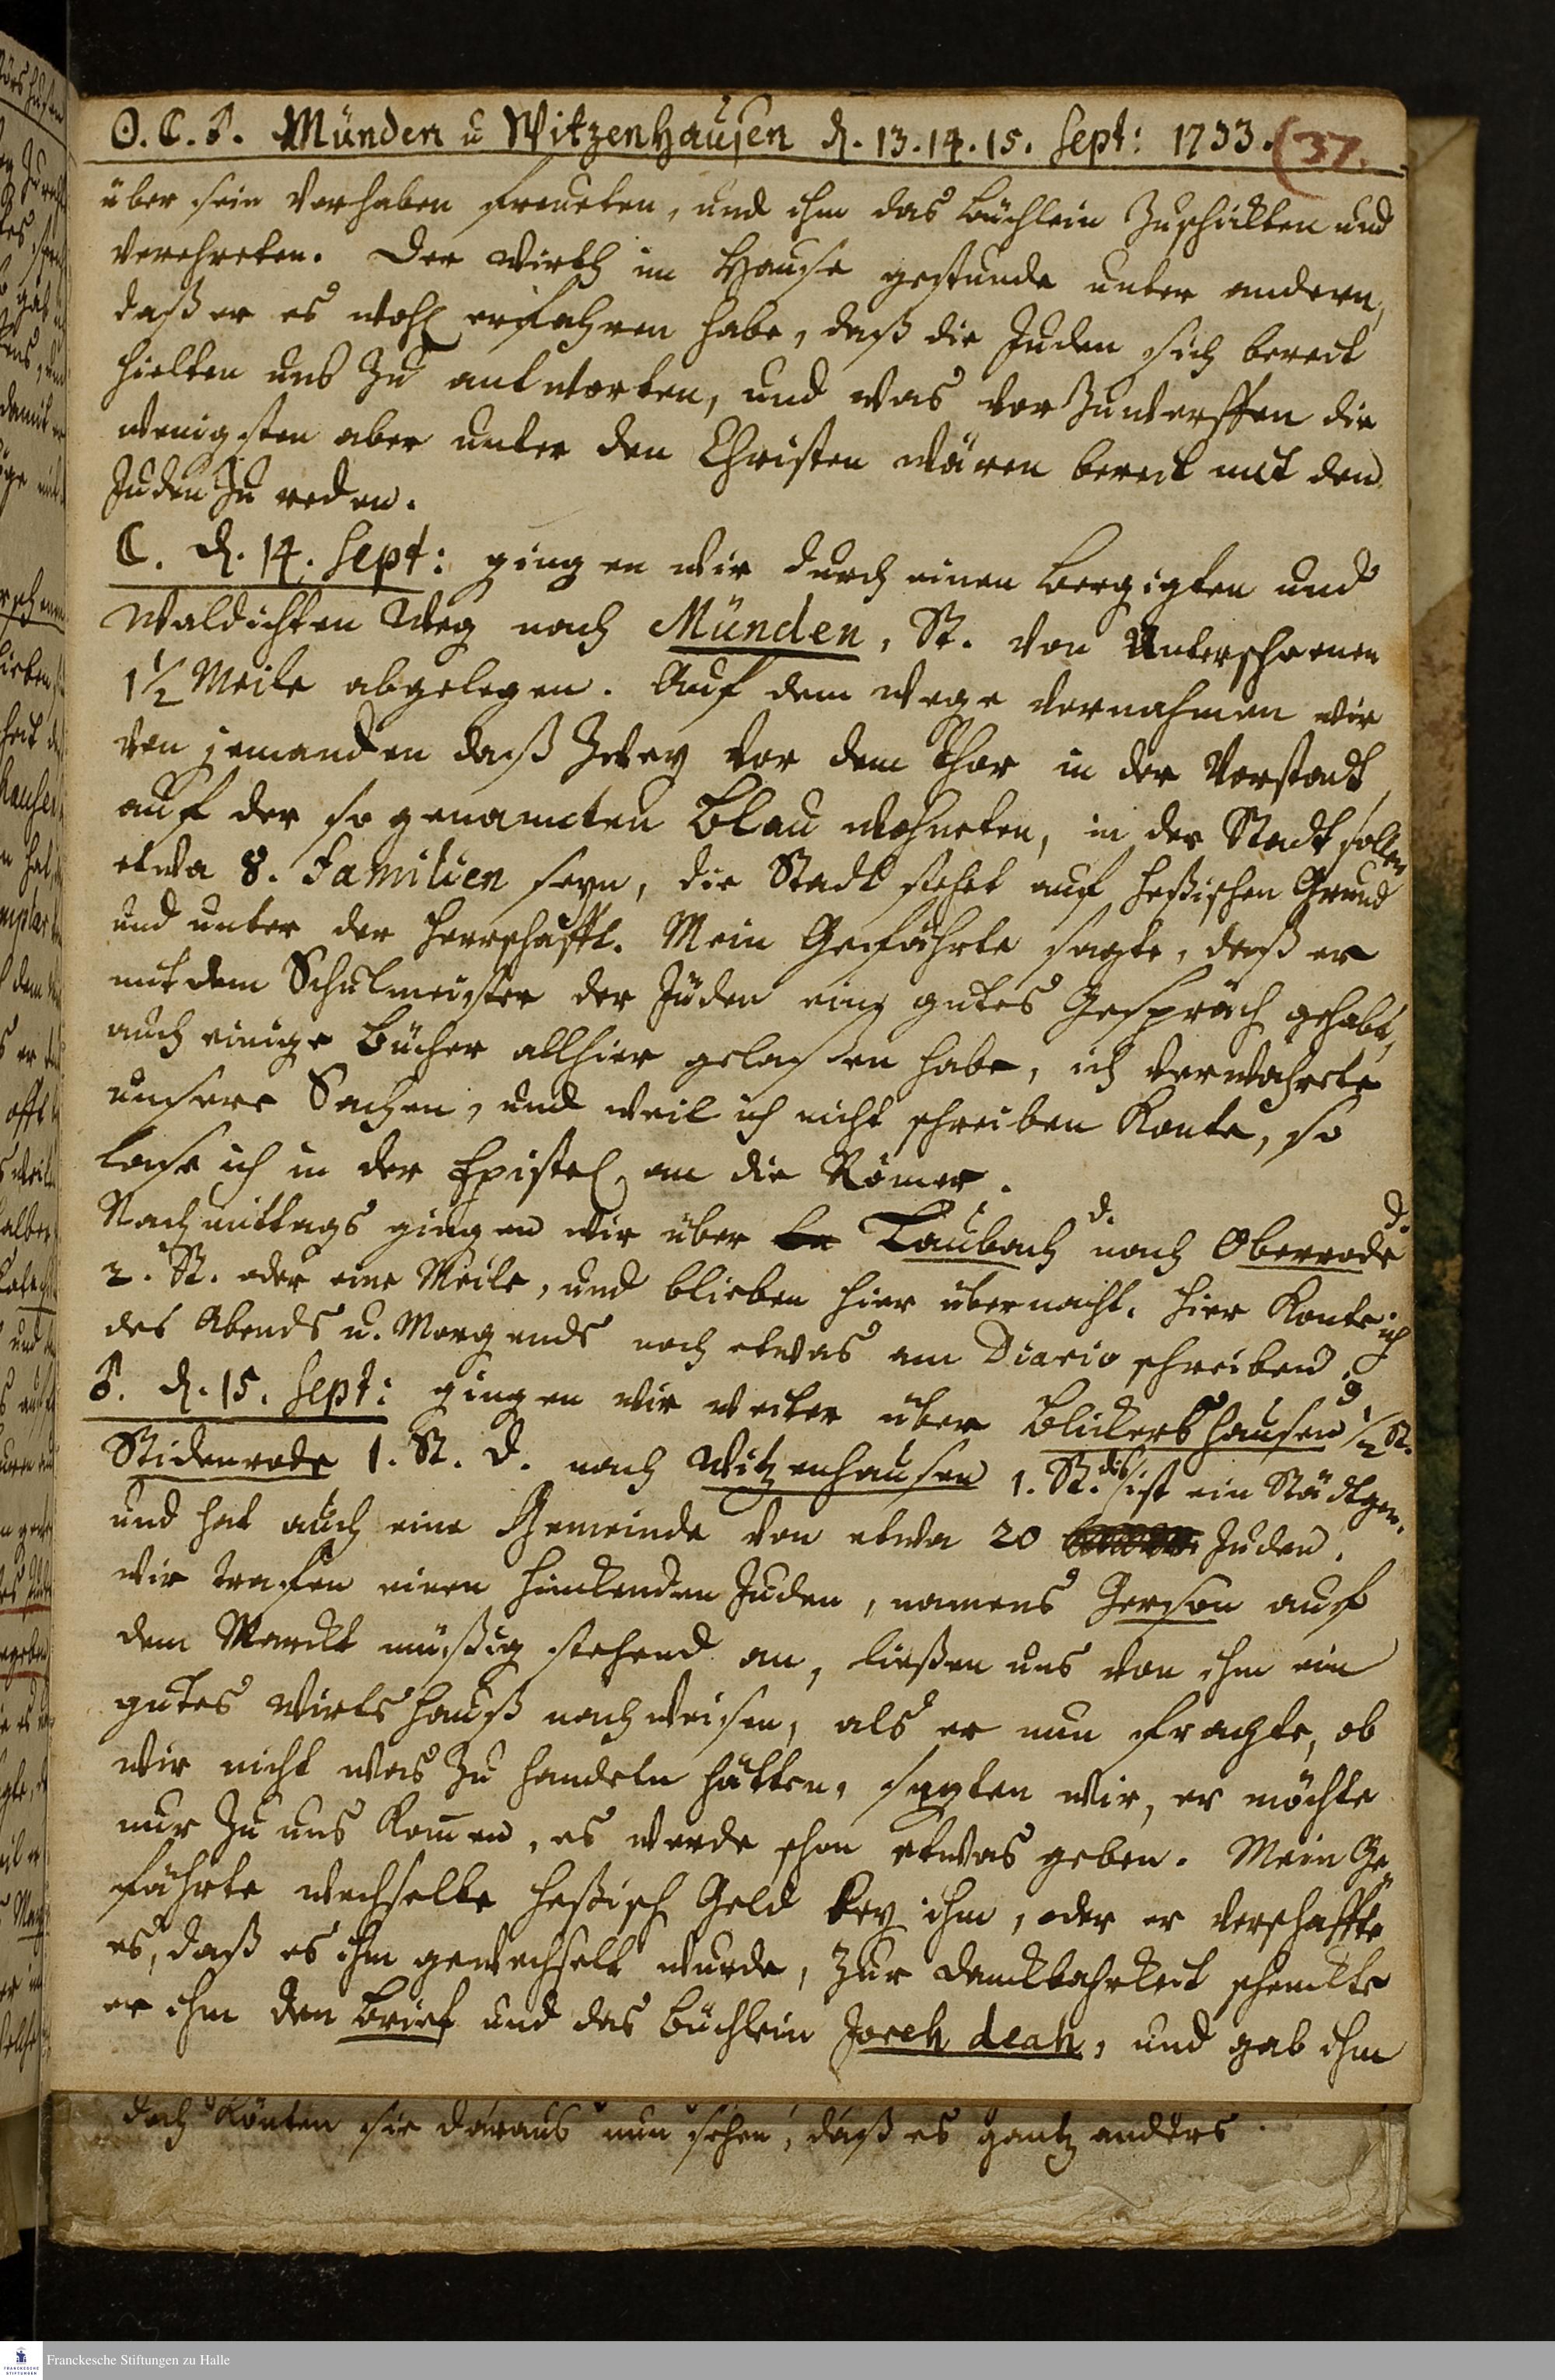 ☉. ☾. ♂. Münden u Witzenhausen d. 13. 14. 15. Sept: 1733. (37.
über sein Vorhaben freueten, und ihm das Büchlein zuschickten und
verehreten. Der Wirth im Hause gestunde unter andern,
daß er es wohl erfahren habe, daß die Juden sich bereit
hielten uns zu antworten, und was vorzuwerffen die
wenigsten aber unter den Christen wären bereit mit den
Juden zu reden.
☾. d. 14. Sept: gingen wir durch einen bergigten und
waldichten Weg nach Münden, St. von
1 1/2 Meile abgelegen. Auf dem wege vernahmen wir
von jemanden daß zwey vor dem Thor in der Vorstadt
auf der so genamten Blau wohneten, in der Stadt sollen
etwa 8. Familien seyn, die Stadt stehet auf Heßischen Grund
und unter der Herrschafft. Mein Gefährte sagte, daß er
mit dem Schulmeister der Jüden ein gutes Gespräch gehabt,
auch einige Bücher allhier gelaßen habe, ich verwahrete
unsere Sachen, und weil ich nicht schreiben konte, so
lase ich in der Epistel an die Römer.
Nachmittags gingen wir über Laubach d. nach Oberrode d.
2. St. oder eine Meile, und blieben hier übernacht. Hier konte ich
des Abends u. Morgends noch etwas am Diario schreiben.
♂. d. 15. Sept: gingen wir weiter über Blickershausen 1/2 St.
Stidenrode 1. St. d. nach Witzenhausen 1. St. diß ist ein Städtgen.
und hat auch eine Gemeinde von etwa 20 Juden.
wir trafen einen hinckenden Juden, namens Gerson auf
dem Marckt müßig stehend an, ließen uns von ihm ein
gutes Wirtshauß nachweisen, als er nun fragte, ob
wir nicht was zu handeln hätten, sagten wir, er möchte
nur zu uns kom̄en, es werde schon etwas geben. Mein Ge„
fährte wechselte Heßisch Geld bey ihm, oder er verschaffte
es, daß es ihm gewechselt wurde, zur danckbahrkeit schenckte
er ihm den Brief und das Büchlein Joreh deah, und gab ihm
doch könten sie daraus nun sehen, daß es gantz anders
Franckesche Stiftungen zu Halle